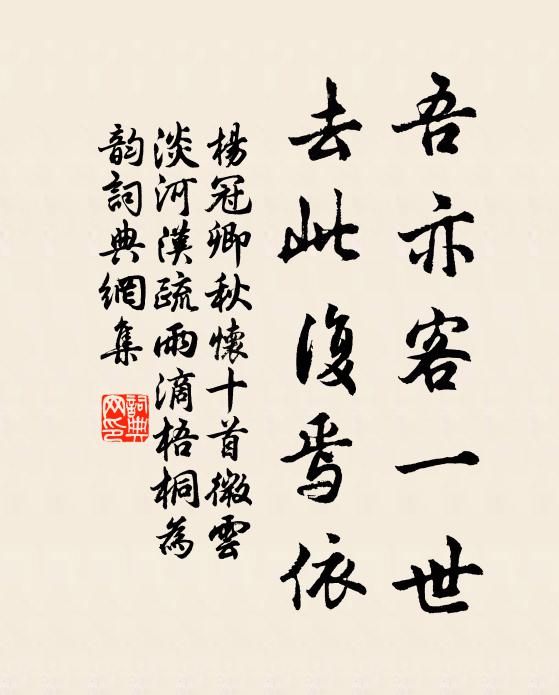 吾亦客一世
去此復焉依
楊冠卿秋懷十首微雲
淡河漢疏雨滴梧桐為
韵詞典網集
詞典
网印